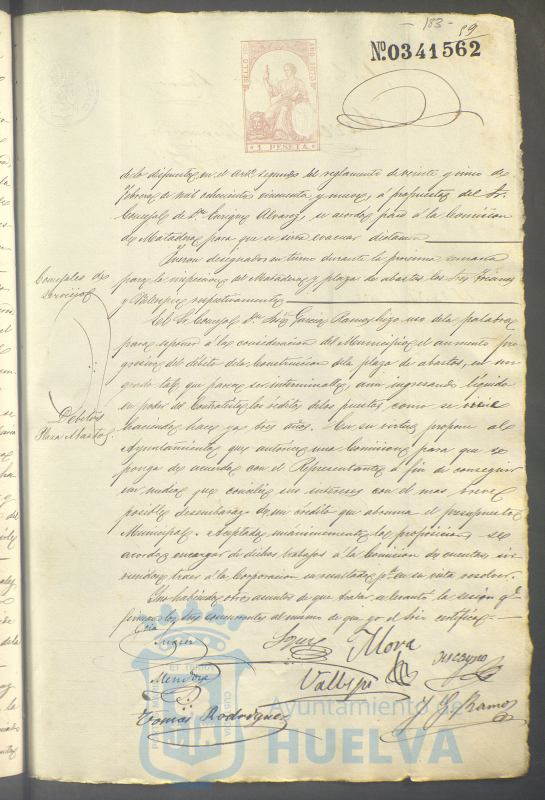 - 183 -
59
Nº 0341562
SELLO 10º AÑO 1879
1 PESETA
de lo dispuesto en el artº segundo del reglamento de veinte y cinco de
Febrero de mil ochocientos cincuenta y nueve, á propuesta del Sr.
Concejal de Dn. Enrique Alvarez, se acordó pase á la Comision
de Matadero para que se sirva evacuar dictamen
Concejales de
Servicio
Fueron designados en turno durante la proxima semana
para la inspeccion del Matadero y plaza de abastos los Sres
y Vallespi respectivamente
Débitos
Plaza Abastos
El Sr. Concejal Dn. José Garcia Ramos hizo uso de la palabra
para esponer á la consideracion del Municipio el aumento pro-
gresivo del débito de la Construccion de la plaza de abastos, en un
grado tal, que parece ser interminable, aun ingresando líquido
en poder del Contratista los réditos de los puestos como se viene
haciendo hace ya tres años. En su virtud propone al
Ayuntamiento que autorice una Comision para que se
ponga de acuerdo con el Representante á fin de conseguir
un medio que concilie sus intereses con el mas breve
posible desembarazo de un crédito que abruma el presupuesto
Municipal. Aceptada unánimemente la proposicion se
acordó encargar de dichos trabajos á la Comision de cuentas
á la Corporacion su resultado pª en su vista resolver.
Y no habiendo otros asuntos de que tratar se levantó la sesion qe
firman los Sres concurrentes al mismo de que yo el Srio certifico.
Mora
Mendoza
Vallespi
Tomás Rodriguez
J. G. Ramos
Ayuntamiento de
HUELVA